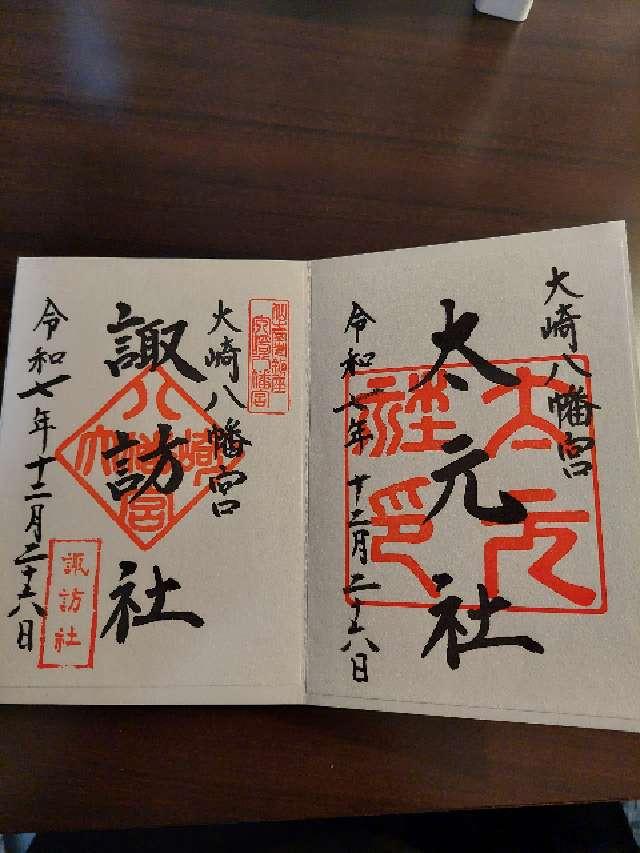 大崎八幡宮
太元社
令和七年十二月二十六日
太元社印
大崎八幡宮
諏訪社
令和七年十二月二十六日
諏訪社